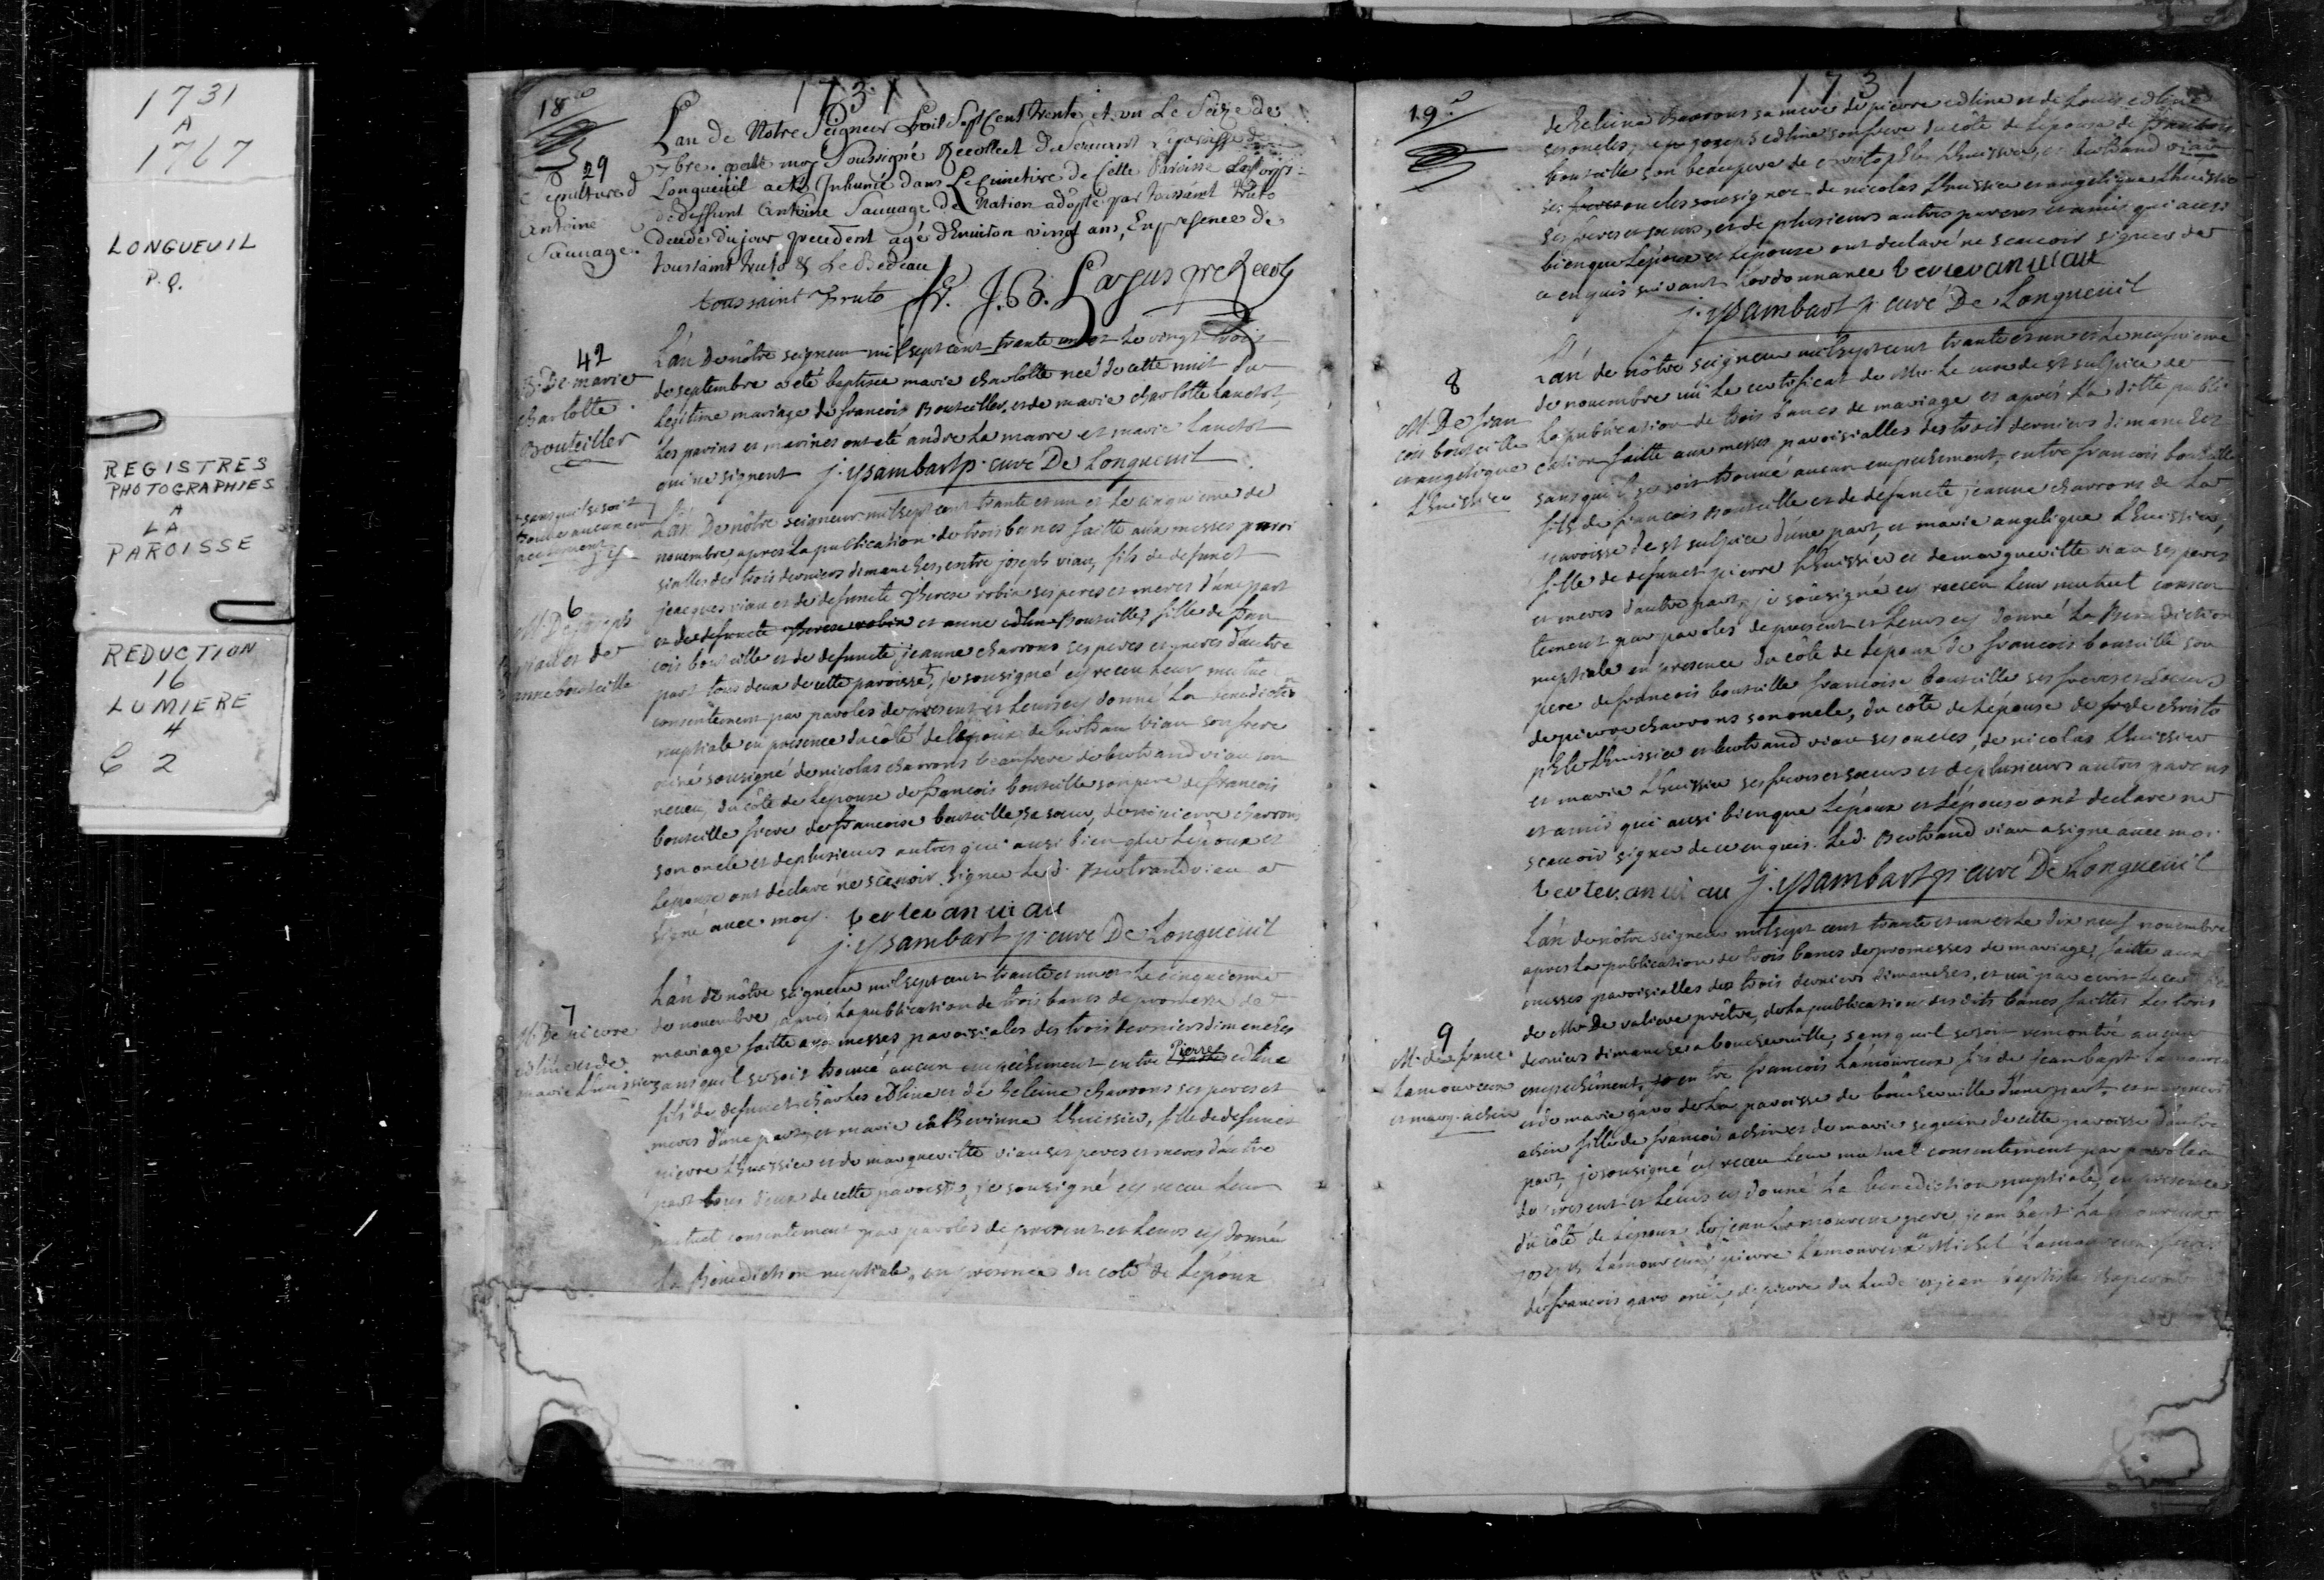 1731
A
1767
LONGUEUIL
P.Q.
REGISTRES
PHOTOGRAPHIES
A
LA
PAROISSE
REDUCTION
16
LUMIERE
4
C 2
18e
1731
29
Sepulture d
Antoine
Sauvage.
L'an de Notre Seigneur Mil Sept Cent trente et un Le Seize de
7bre. par moy Soussigné Recollect Desservant La paroisse de
Longueuil a eté Inhumé dans Le Cimetiere de Cette Paroisse Le Corps
de deffunt Antoine Sauvage de Nation adopté par toussaint truto
decedé du jour precedent agé d'Environ vingt ans, En presence de
toussaint truto & Le Bedeau
toussaint truto fr. J. B. Lajus ptre Recol
42
B. De marie
charlotte
Bouteiller
L'an De nôtre seigneur mil sept cent trante un et Le vingt trois
de septembre a eté baptisée marie charlotte neé de cette nuit du
Legitime mariage de francois Bouteiller, et de marie charlotte Lanctot,
Les parins et marines ont eté andre La marre et marie Lanctot
qui ne signent j. ysambart p. curé De Longueuil
+ sans quil se soit
trouvé aucun em
pechement j y
6
M. De joseph
viau et de
anne bouteille
L'an De nôtre seigneur mil sept cent trante et un et Le cinquieme de
novembre, apres La publication de trois bancs faitte aux messes paroi
sialles des trois derniers dimanches, entre joseph viau, fils de defunct
jeacques viau et de defuncte Therese robin ses peres et meres d'une part
et de defuncte therese robin et anne edline Bouteille, fille de fran
cois bouteille et de defuncte jeanne charrons ses peres et meres d'autre
part tous deux de cette paroisse+, je sousigné ey receu Leur mutuel
consentement par paroles de present et Leurs ey donné La benediction
nuptiale en presence du côté de L'epoux de bertran viau son frere
ainé sousigné de nicolas charrons beaufrere de bertrand viau son
neveu, du côté de Lepouse de francois bouteille son pere de francois
bouteille frere de francoise bouteille, sa soeur, de pierre charrons
son oncle et de plusieurs autres qui ausi bien que Lepoux et
Lepouse ont declaré ne scavoir signer Led. Bertrand viau a
signé avec moy. berteran uiau
j. ysambart p. curé De Longueuil
7
M. De pierre
edline et de
marie Lhuissier
L'an de nôtre seigneur mil sept cent trante et un et Le cinquieme
de novembre, apres La publication de trois bancs de promesse de
mariage faitte aux messes paroisiales des trois derniers dimenches
sans quil se soit trouvé aucun empechement entre Pierre edline
fils de defunct charles edline et de heleine charrons ses peres et
meres d'une part, et marie catherinne Lhuissier, fille de defunct
pierre Lhuissier et de marguerite viau ses peres et meres d'autre
part tous deux de cette paroisse, je sousigné ey receu Leur
mutuel consentement par paroles de present et Leurs ey donné
La Benediction nuptiale, en presence du coté de Lepoux
19e
1731
de heleine charrons sa mere de pierre edline et de Louis edline
ses oncles, joseph edline son frere du côté de Lepouse de francois
bouteille son beaupere de christophle Lhuissier et bertrand viau
ses freres oncles sousignez de nicolas Lhuissier et angelique Lhuissier
ses freres et soeurs, et de plusieurs autres parens et amis qui ausi
bien que Lépoux et Lépouse ont declaré ne scavoir signer de
ce enquis suivant Lordonnance berteran uiau
j. ysambart p. curé De Longueuil
8
M. De fran
cois bouteille
et angelique
Lhuissier
L'an de nôtre seigneur mil sept cent trante et un et Le neufvieme
de novembre vû Le certificat de Mr. Le curé de st sulpice de
La publication de trois bancs de mariage et aprés La ditte publi
cation faitte aux messes paroisialles des trois derniers dimanches
sans quil se soit trouvé aucun empechement, entre francois bouteille
fils de francois Bouteille et de defuncte jeanne charrons de La
paroisse de st sulpice d'une part, et marie angelique Lhuissier,
fille de defunct pierre Lhuissier et de marguerite viau ses peres
et meres d'autre part, je sousigné ey receu leur mutuel consen
tement par paroles de present et Leurs ey donné La Benediction
nuptiale en presence du côté de Lepoux de francois bouteille son
pere de francois bouteille francoise bouteille ses freres et soeurs
de pierre charrons son oncle, du côté de Lépouse de christo
phle Lhuissier et bertrand viau ses oncles, de nicolas Lhuissier
et marie Lhuissier ses freres et soeurs et de plusieurs autres parens
et amis qui ausi bien que Lépoux et Lépouse ont declaré ne
scavoir signer de ce enquis. Led. Bertrand viau a signé avec moi
berteran ui au j. ysambart p. curé De Longueuil
9
M. de franc.
Lamoureux
et marg. achin
L'an de nôtre seigneur mil sept cent trante et un et Le dix neuf novembre
apres La publication de trois bancs de promesses de mariage, faitte aux
messes paroisialles des trois derniers dimanches, et vû par ecrit Le certific
de Mr De valiere prêtre, de La publication des dits bancs faittes Les trois
derniers dimanche a boucherville, sans quil se soit rencontré aucun
empechement, entre francois Lamoureux fils de jean bapt. Lamoureux
et de marie gavo de La paroisse de boucherville d'une part, et
achin fille de francois achin et de marie seguin de cette paroisse d'autre
part, je sousigné ey receu Leur mutuel consentement par paroles
de present et Leurs ey donné La benediction nuptiale, en presence
du côté de Lepoux de jean Lamoureux pere, jean bapt. Lamoureux
joseph Lamoureux, pierre Lamoureux Michel Lamoureux freres
de francois gavo oncle, de pierre du Lude et jean baptiste